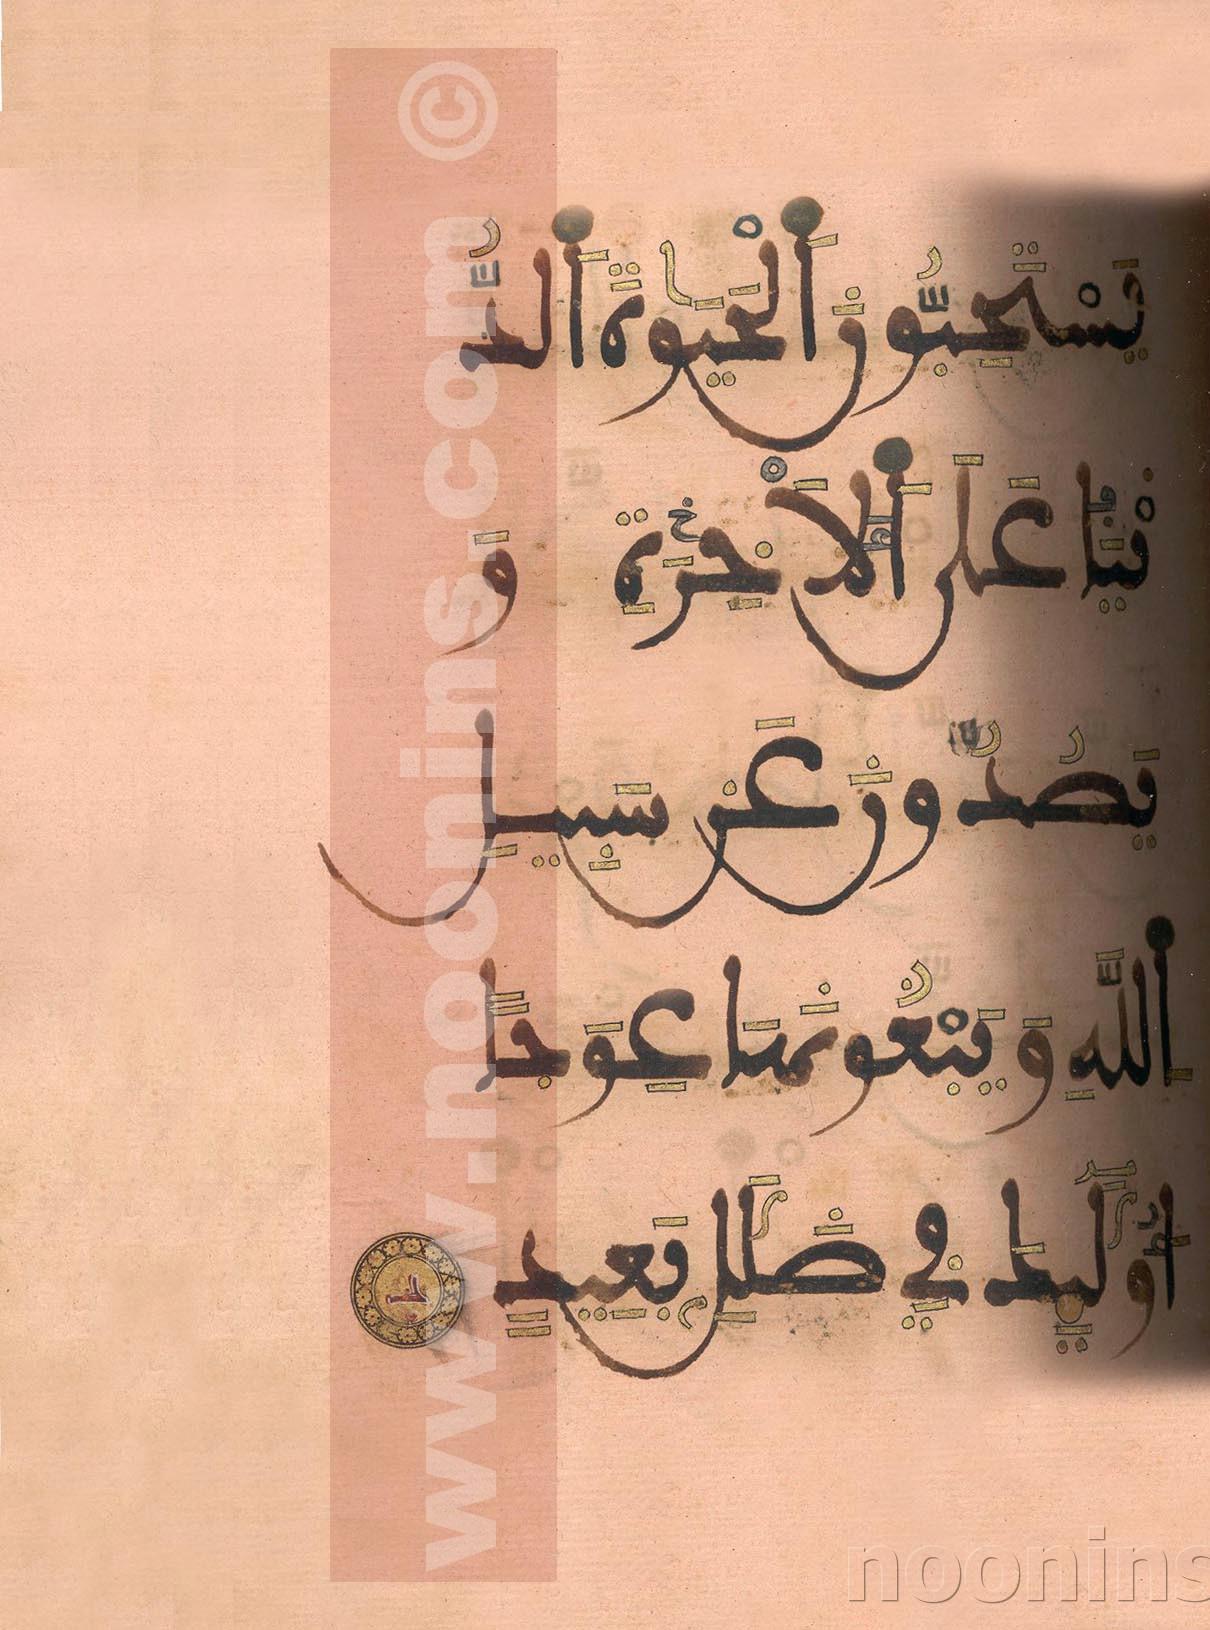 يَسْتَحِبُّونَ ٱلْحَيَوٰةَ ٱلدُّ
نْيَا عَلَى ٱلْأَخِرَةِ وَ
يَصُدُّونَ عَن سَبِيلِ
ٱللَّهِ وَيَبْغُونَهَا عِوَجًا
أُوْلَٰئِكَ فِي ضَلَٰلٍ بَعِيدٍ
www.noonins.com ©
noonins